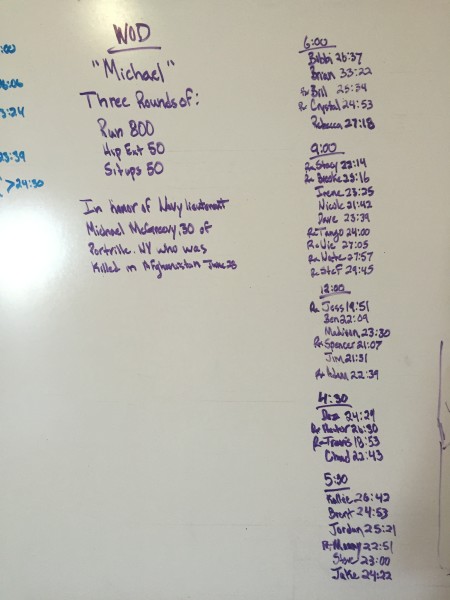 :00
:06
3:24
23:39
( >24:30
WOD
"Michael"
Three Rounds of:
Run 800
Hip Ext 50
Situps 50
In honor of Navy lieutenant
Michael McGreevy, 30 of
Portville, NY who was
killed in Afghanistan June 28
6:00
Bobbi 26:37
Brian 33:22
Bill 25:34
Rx Crystal 24:53
Rebecca 27:18
9:00
Rx Stacy 22:14
Rx Brooke 23:16
Irene 23:25
Nicole 21:42
Dave 23:39
Rx Tango 24:00
Rx Vic 27:05
Rx Nate 27:57
Rx Stef 29:45
12:00
Rx Jess 19:51
Ben 22:09
Madison 23:30
Rx Spencer 21:07
Jim 21:31
Rx Adam 22:39
4:30
24:29
Rx Hector 26:30
Rx Travis 18:53
Chad 22:43
5:30
Kallie 26:42
Brent 24:53
Jordan 25:21
Rx Manny 22:51
Steve 23:00
Jake 24:22